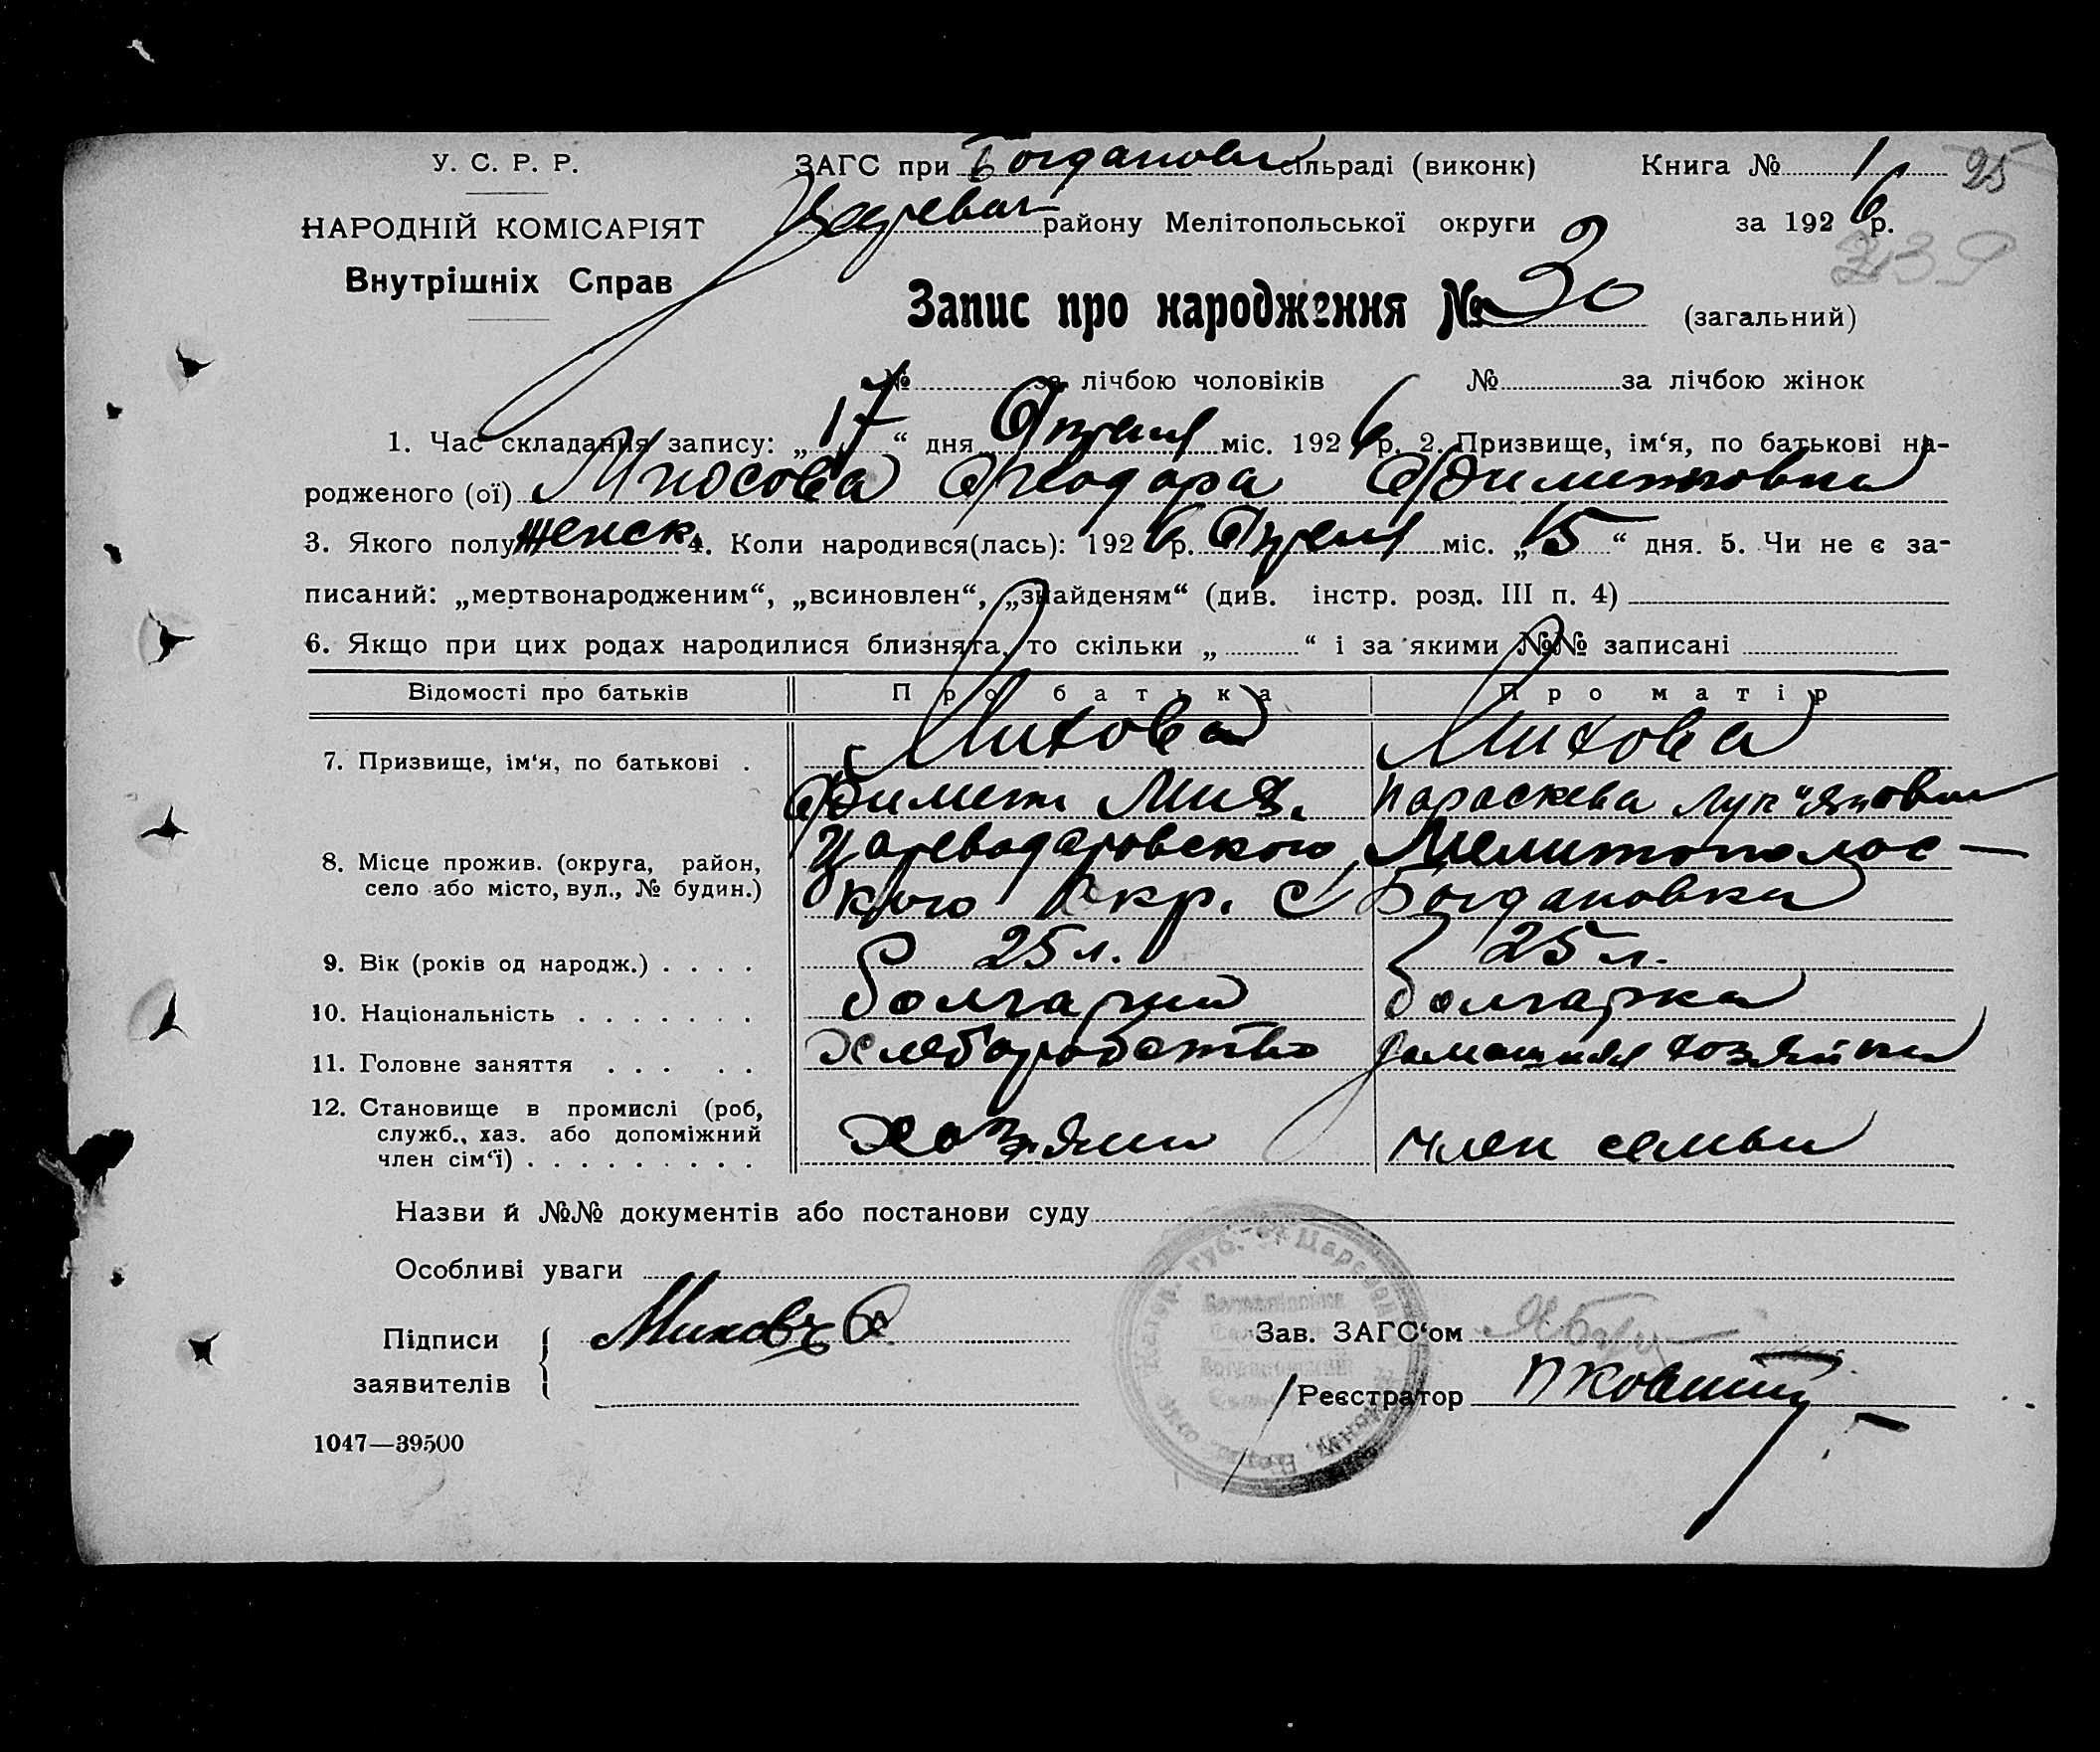 У. С. Р. Р.
ЗАГС при Богдановки сільраді (виконк)
Книга № 1
95
НАРОДНІЙ КОМІСАРІЯТ
району Мелітопольської округи
за 1926 р.
Внутрішніх Справ
239
Запис про народження № 30 (загальний)
№ за лічбою чоловіків № за лічбою жінок
1. Час складання запису: „17“ дня Апреля міс. 1926 р. 2. Призвище, ім‘я, по батькові на-
родженого (ої) Феодора Димитровна
3. Якого полу Женск. 4. Коли народився(лась): 1926 р. Апреля міс. „15“ дня. 5. Чи не є за-
писаний: „мертвонародженим“, „всиновлен“, „знайденям“ (див. інстр. розд. III п. 4)
6. Якщо при цих родах народилися близнята, то скільки „ “ і за якими №№ записані
Відомості про батьків Про батька Про матір
7. Призвище, ім‘я, по батькові . Михова Михова
Димит Мих. Параскева Луп"яновна
8. Місце прожив. (округа, район, село або місто, вул., № будин.) Цареводаровского Мелитопольс-
кого Окр. с Богдановка
9. Вік (років од народж.) . . . . 25 л. 25 л.
10. Національність . . . . . . . болгарин болгарка
11. Головне заняття . . . . . Хлеборобство домашняя хозяйка
12. Становище в промислі (роб, служб., хаз. або допоміжний член сім‘ї) . . . . . . . . . Хозяин член семьи
Назви й №№ документів або постанови суду
Особливі уваги
Підписи заявителів Михов
Зав. ЗАГС‘ом
Реєстратор
1047—39500